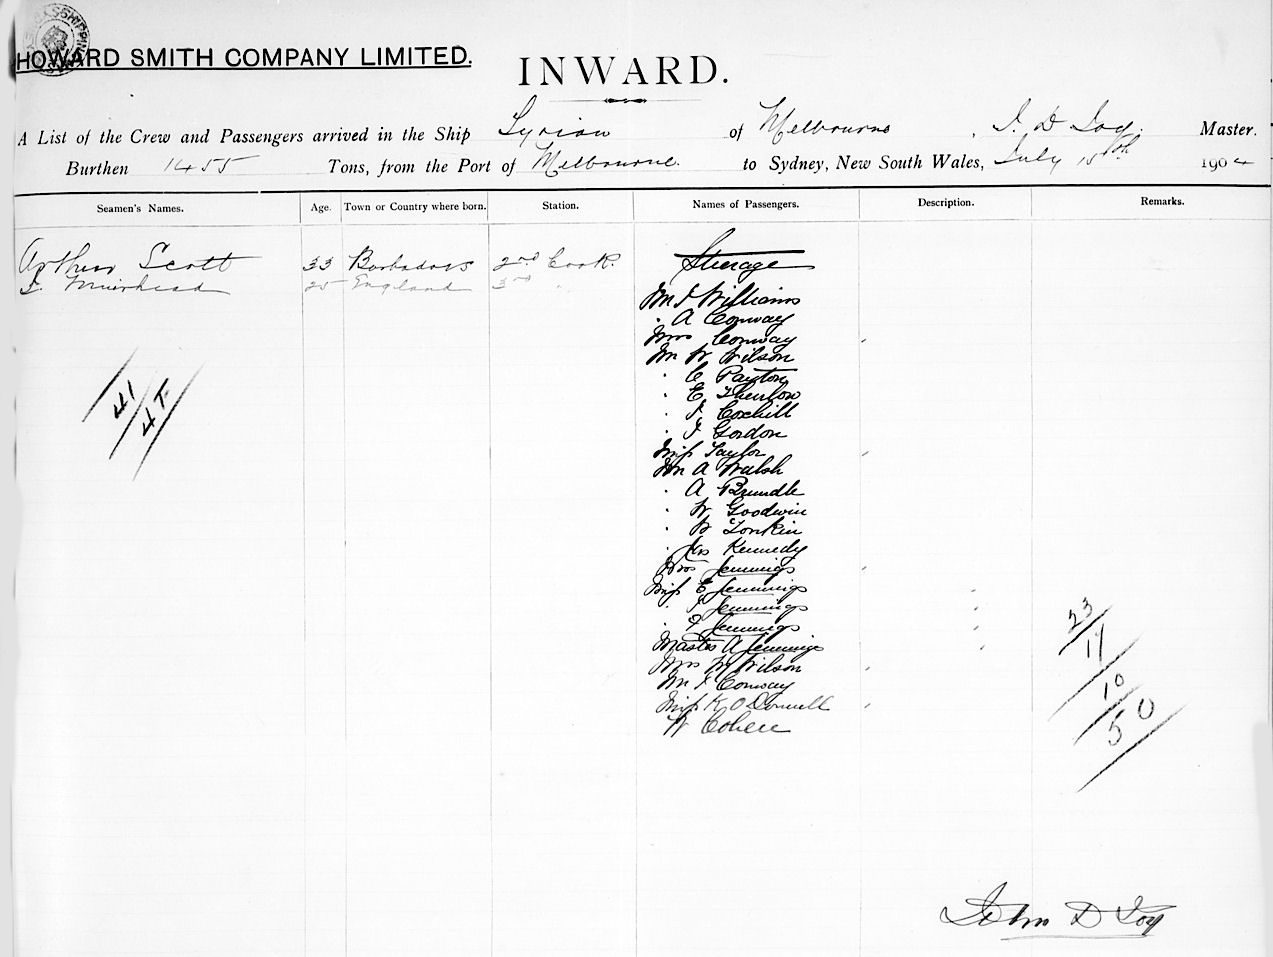 HOWARD SMITH COMPANY LIMITED.
INWARD.
A List of the Crew and Passengers arrived in the Ship Syrian of Melbourne, J. D. Joy. Master.
Burthen 1455 Tons, from the Port of Melbourne. to Sydney, New South Wales, July 15th 1904
Seamen's Names. Age. Town or Country where born. Station. Names of Passengers. Description. Remarks.
Arthur Scott 33 Barbados 2nd Cook.
Muirhead 25 England 3rd "
Steerage
Mr J Williams
" A Conway
Mrs Conway
Mr W Wilson
" C Payton
" E
" J Coxhill
" J Gordon
Miss Taylor
Mr A Walsh
" A Brundle
" W Goodwin
" Tonkin
" Jas Kennedy
Mrs Jennings
Miss E Jennings
" J Jennings
" F Jennings
Master A Jennings
Mrs W Wilson
Mr J Conway
Miss K O'Donnell
W Cohen
41
45
23
17
10
50
John D Joy